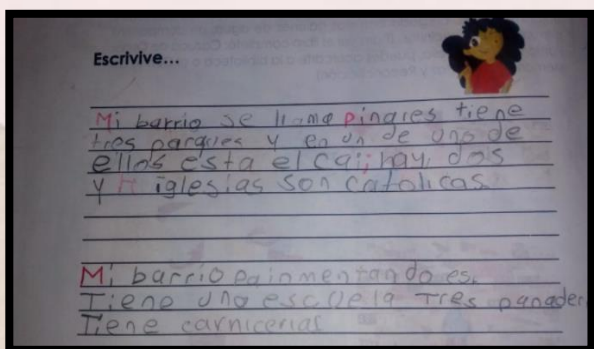 Escrivive...
Mi barrio se llama pinares tiene
tres parques y en un de uno de
ellos esta el cai; hay dos
y H iglesias son catolicas.
Mi barrio es.
Tiene una escuela Tres panader
Tiene carnicerias